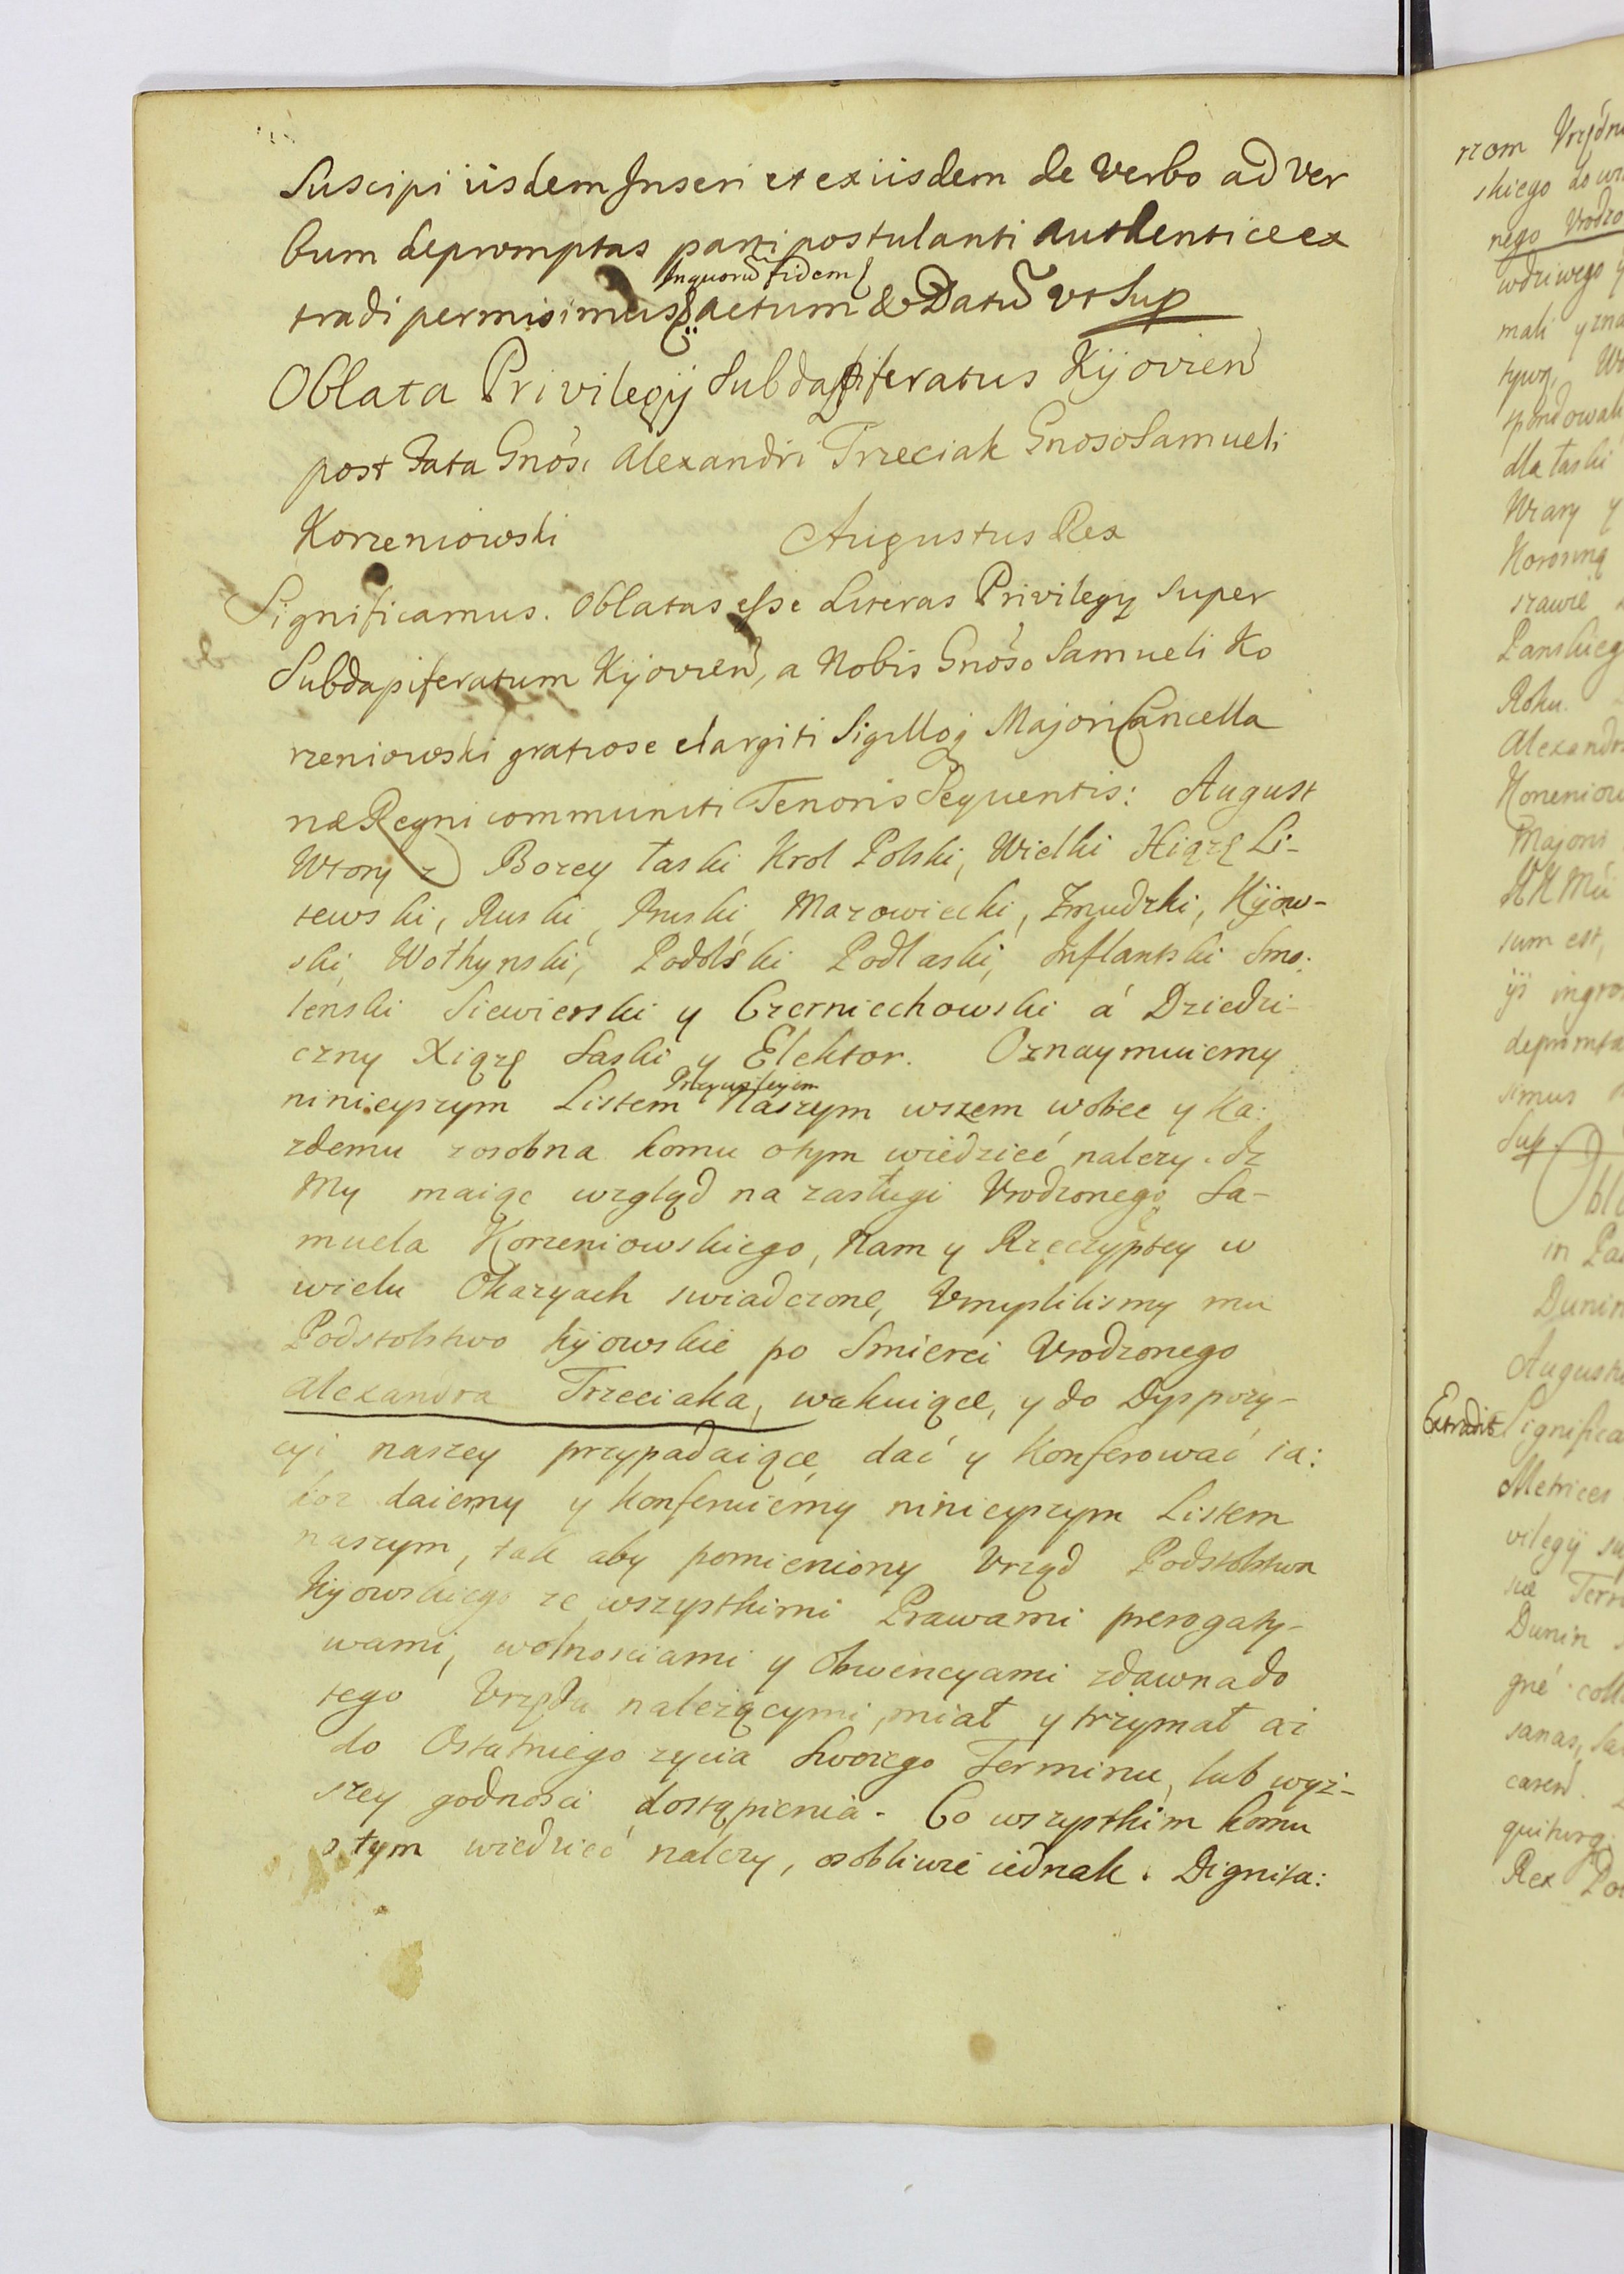 Suscipi iisdem Inseri et ex iisdem de Verbo ad Ver
bum depromptas parti postulanti authentice ex
tradi permisimus In quorũ fidem actum & Datũ vt Sup
Oblata Privilegij Subdapiferatus Kijovień
post Fata Gnosi Alexandri Trzeciak Gnoso Samueli
Korzeniowski Augustus Rex
Significamus. Oblatas esse Literas Privilegij Super
Subdapiferatum Kijovień, a Nobis Gnoso Samueli Ko
rzeniowski gratiose elargiti Sigilloq Majori Cancella
riæ Regni communiti Tenoris Sequentis: August
Wtory z Bozey łaski Krol Polski, Wielki Xiąże Li-
tewski, Ruski, Pruski, Mazowiecki, Zmudzki, Kijow-
ski, Wołhynski, Podolski Podlaski, Inflantski Smo:
lenski Siewierski y Czerniechowski á Dziedzi-
czny Xiąże Saski y Elektor. Oznaymuiemy
ninieyszym Listem Przywileyem Naszym wszem wobec y Ka:
zdemu zosobna komu otym wiedzieć nalezy. Iz
My maiąc wzgląd na zasługi Vrodzonego Sa-
muela Korzeniowskiego, Nam y Rzeczyptey w
wielu Okazyach swiadczone, Vmyslilismy mu
Podstolstwo kijowskie po Smierci Vrodzonego
Alexandra Trzeciaka, wakuiące, y do Dyspozy-
cyi naszey przypadaiące, dać y Konferować ia:
koz daiemy y konferuiemy ninieyszym Listem
naszym, tak aby pomieniony Vrząd Podstolstwa
Kijowskiego ze wszystkimi Prawami prerogaty-
wami, wolnosciami y Obwencyami zdawna do
tego Vrzędu nalezącymi, miał y trzymał az
do Ostatniego zycia Swoiego Terminu, lub wyz-
szey godnosci dostąpienia. Co wszystkim komu
o tym wiedzieć nalezy, osobliwie iednak. Dignita:
rzom Vrzędni
skiego do
nego Vrodzo
mali y zna
dla łaski
Wiary y
Koronną
Roku.
Alexandr
Majoris
sum est,
simus
Sup.
Obla
in Pa
Dunin
August
Extradit Significa
Metrices
vilegij su
Dunin
quiturq
Rex Po